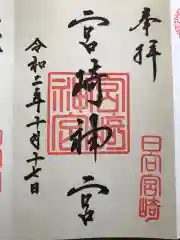 奉拝
宮崎神宮
令和二年十月十七日
宮崎
神宮